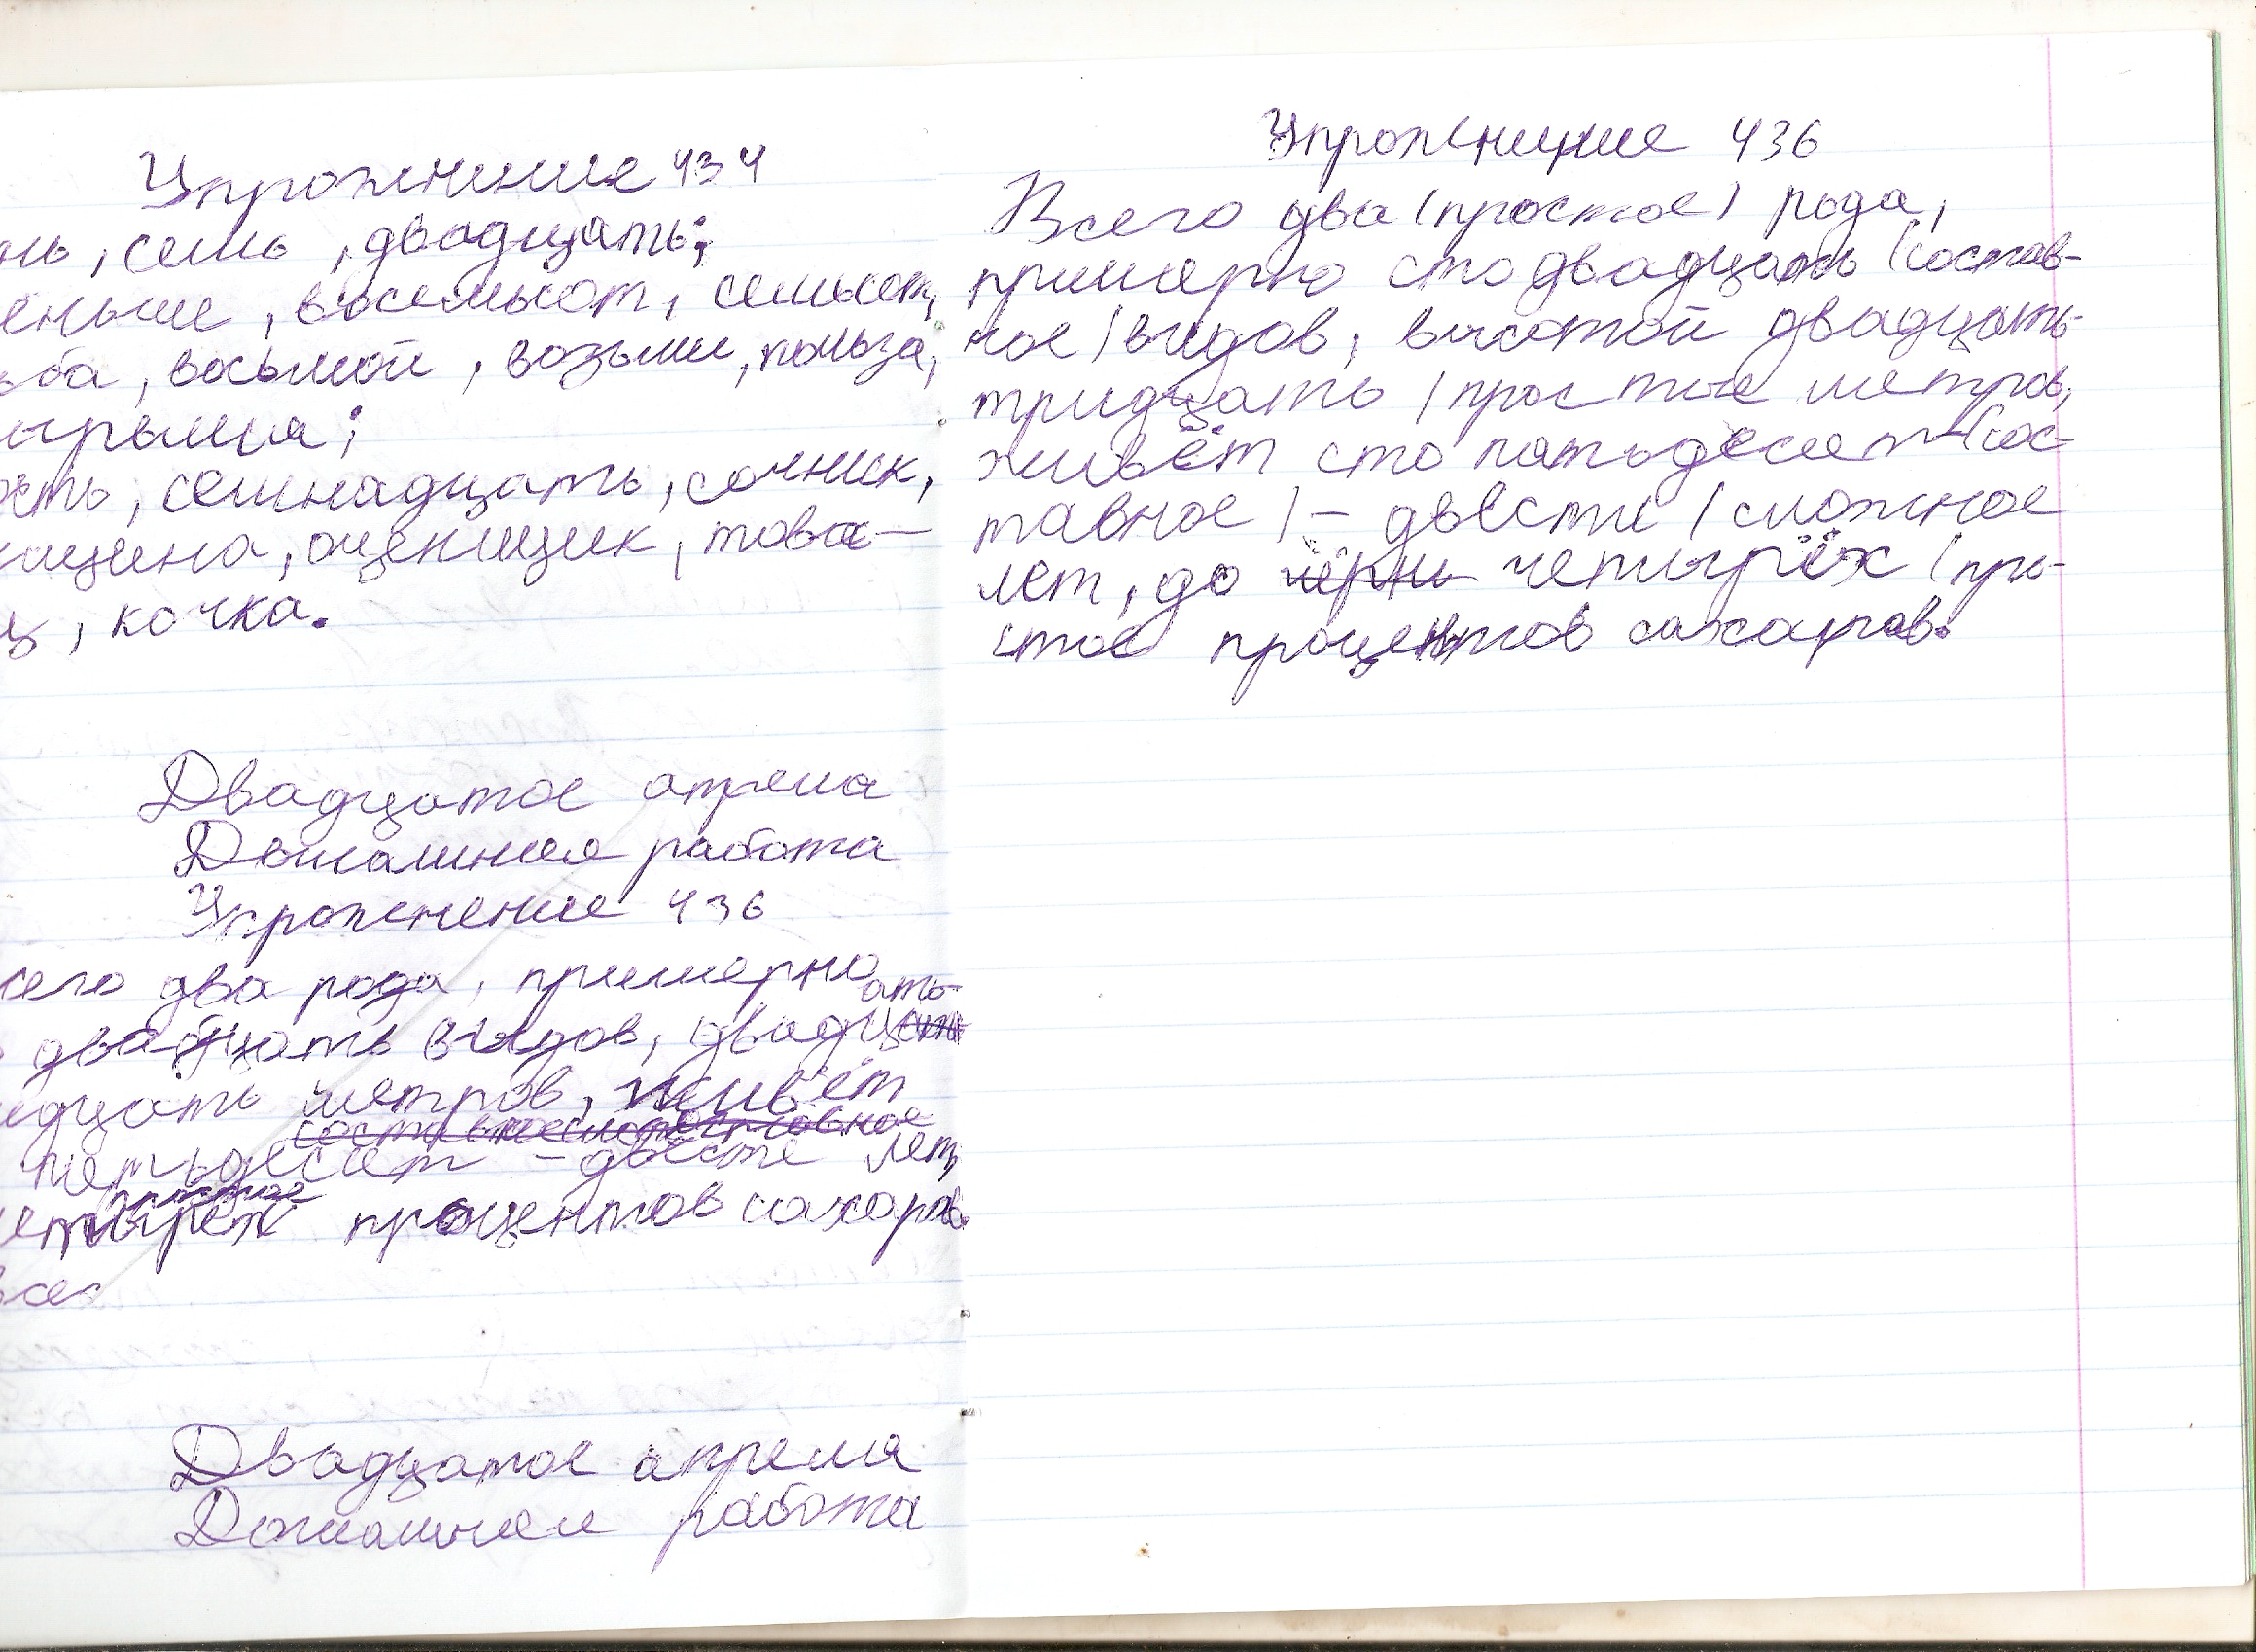 Упражнение 434
нь, семь, двадцать;
еньше, восемьсот, семьсот,
ьба, восьмой, возьми, польза,
ырьмя;
ость, семнадцать, сочник,
ащина, оценщик, това-
щ, кочка.
Двадцатое апреля
Домашняя работа
Упражнение 436
сего два рода, примерно
двадцать видов, двадцать-
идцать метров, живёт
пятьдесят - двести лет,
четырёх процентов сахаров.
все
Двадцатое апреля
Домашняя работа
Упражнение 436
Всего два (простое) рода,
примерно сто двадцать (состав-
ное) видов, высотой двадцать-
тридцать (простые метров,
живёт сто пятьдесят (сос-
тавное) - двести (сложное
лет, до четырёх (про-
стое процентов сахаров.